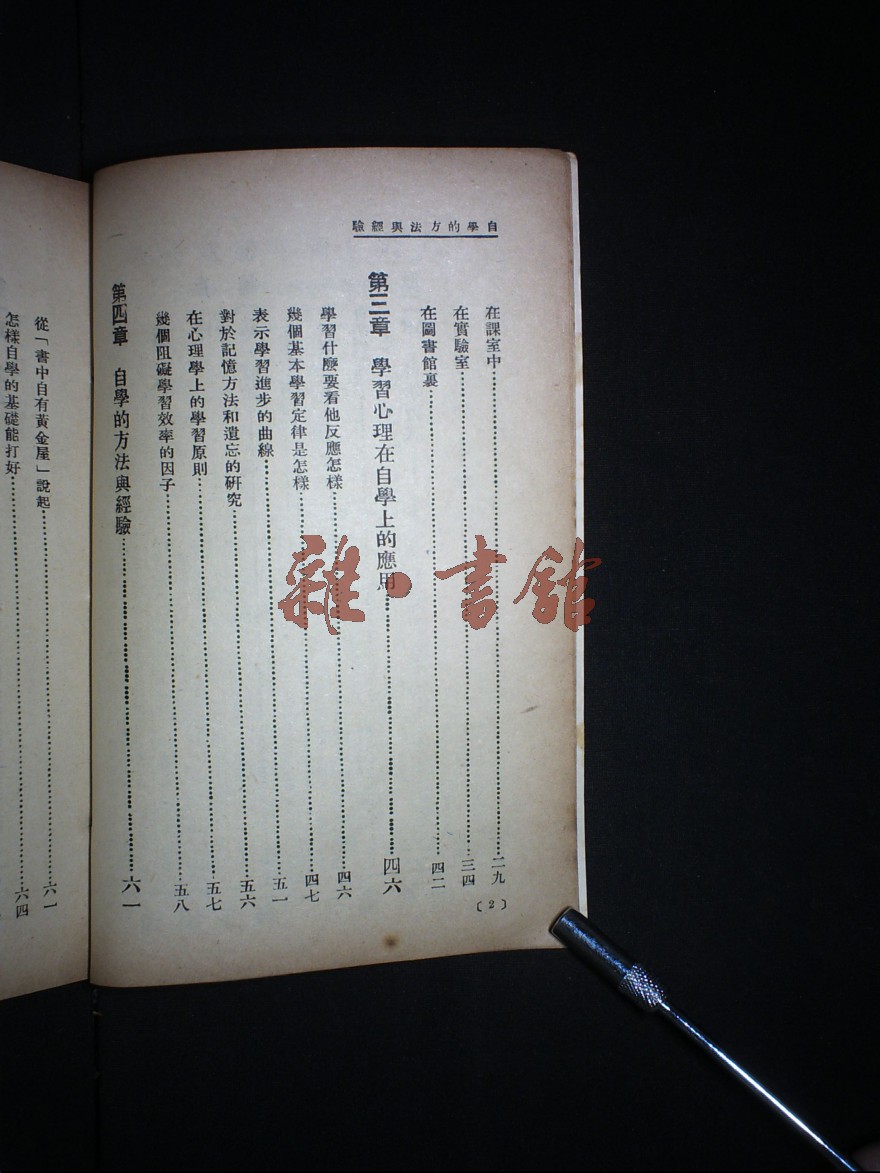 自學的方法與經驗
在課室中……二九
在實驗室……三四
在圖書館裏……四二
第三章 學習心理在自學上的應用……四六
學習什麼要看他反應怎樣……四六
幾個基本學習定律是怎樣……四七
表示學習進步的曲線……五一
對於記憶方法和遺忘的研究……五六
在心理學上的學習原則……五七
幾個阻礙學習效率的因子……五八
第四章 自學的方法與經驗……六一
〔2〕
從「書中自有黃金屋」說起……六一
怎樣自學的基礎能打好……六四
雜·書館